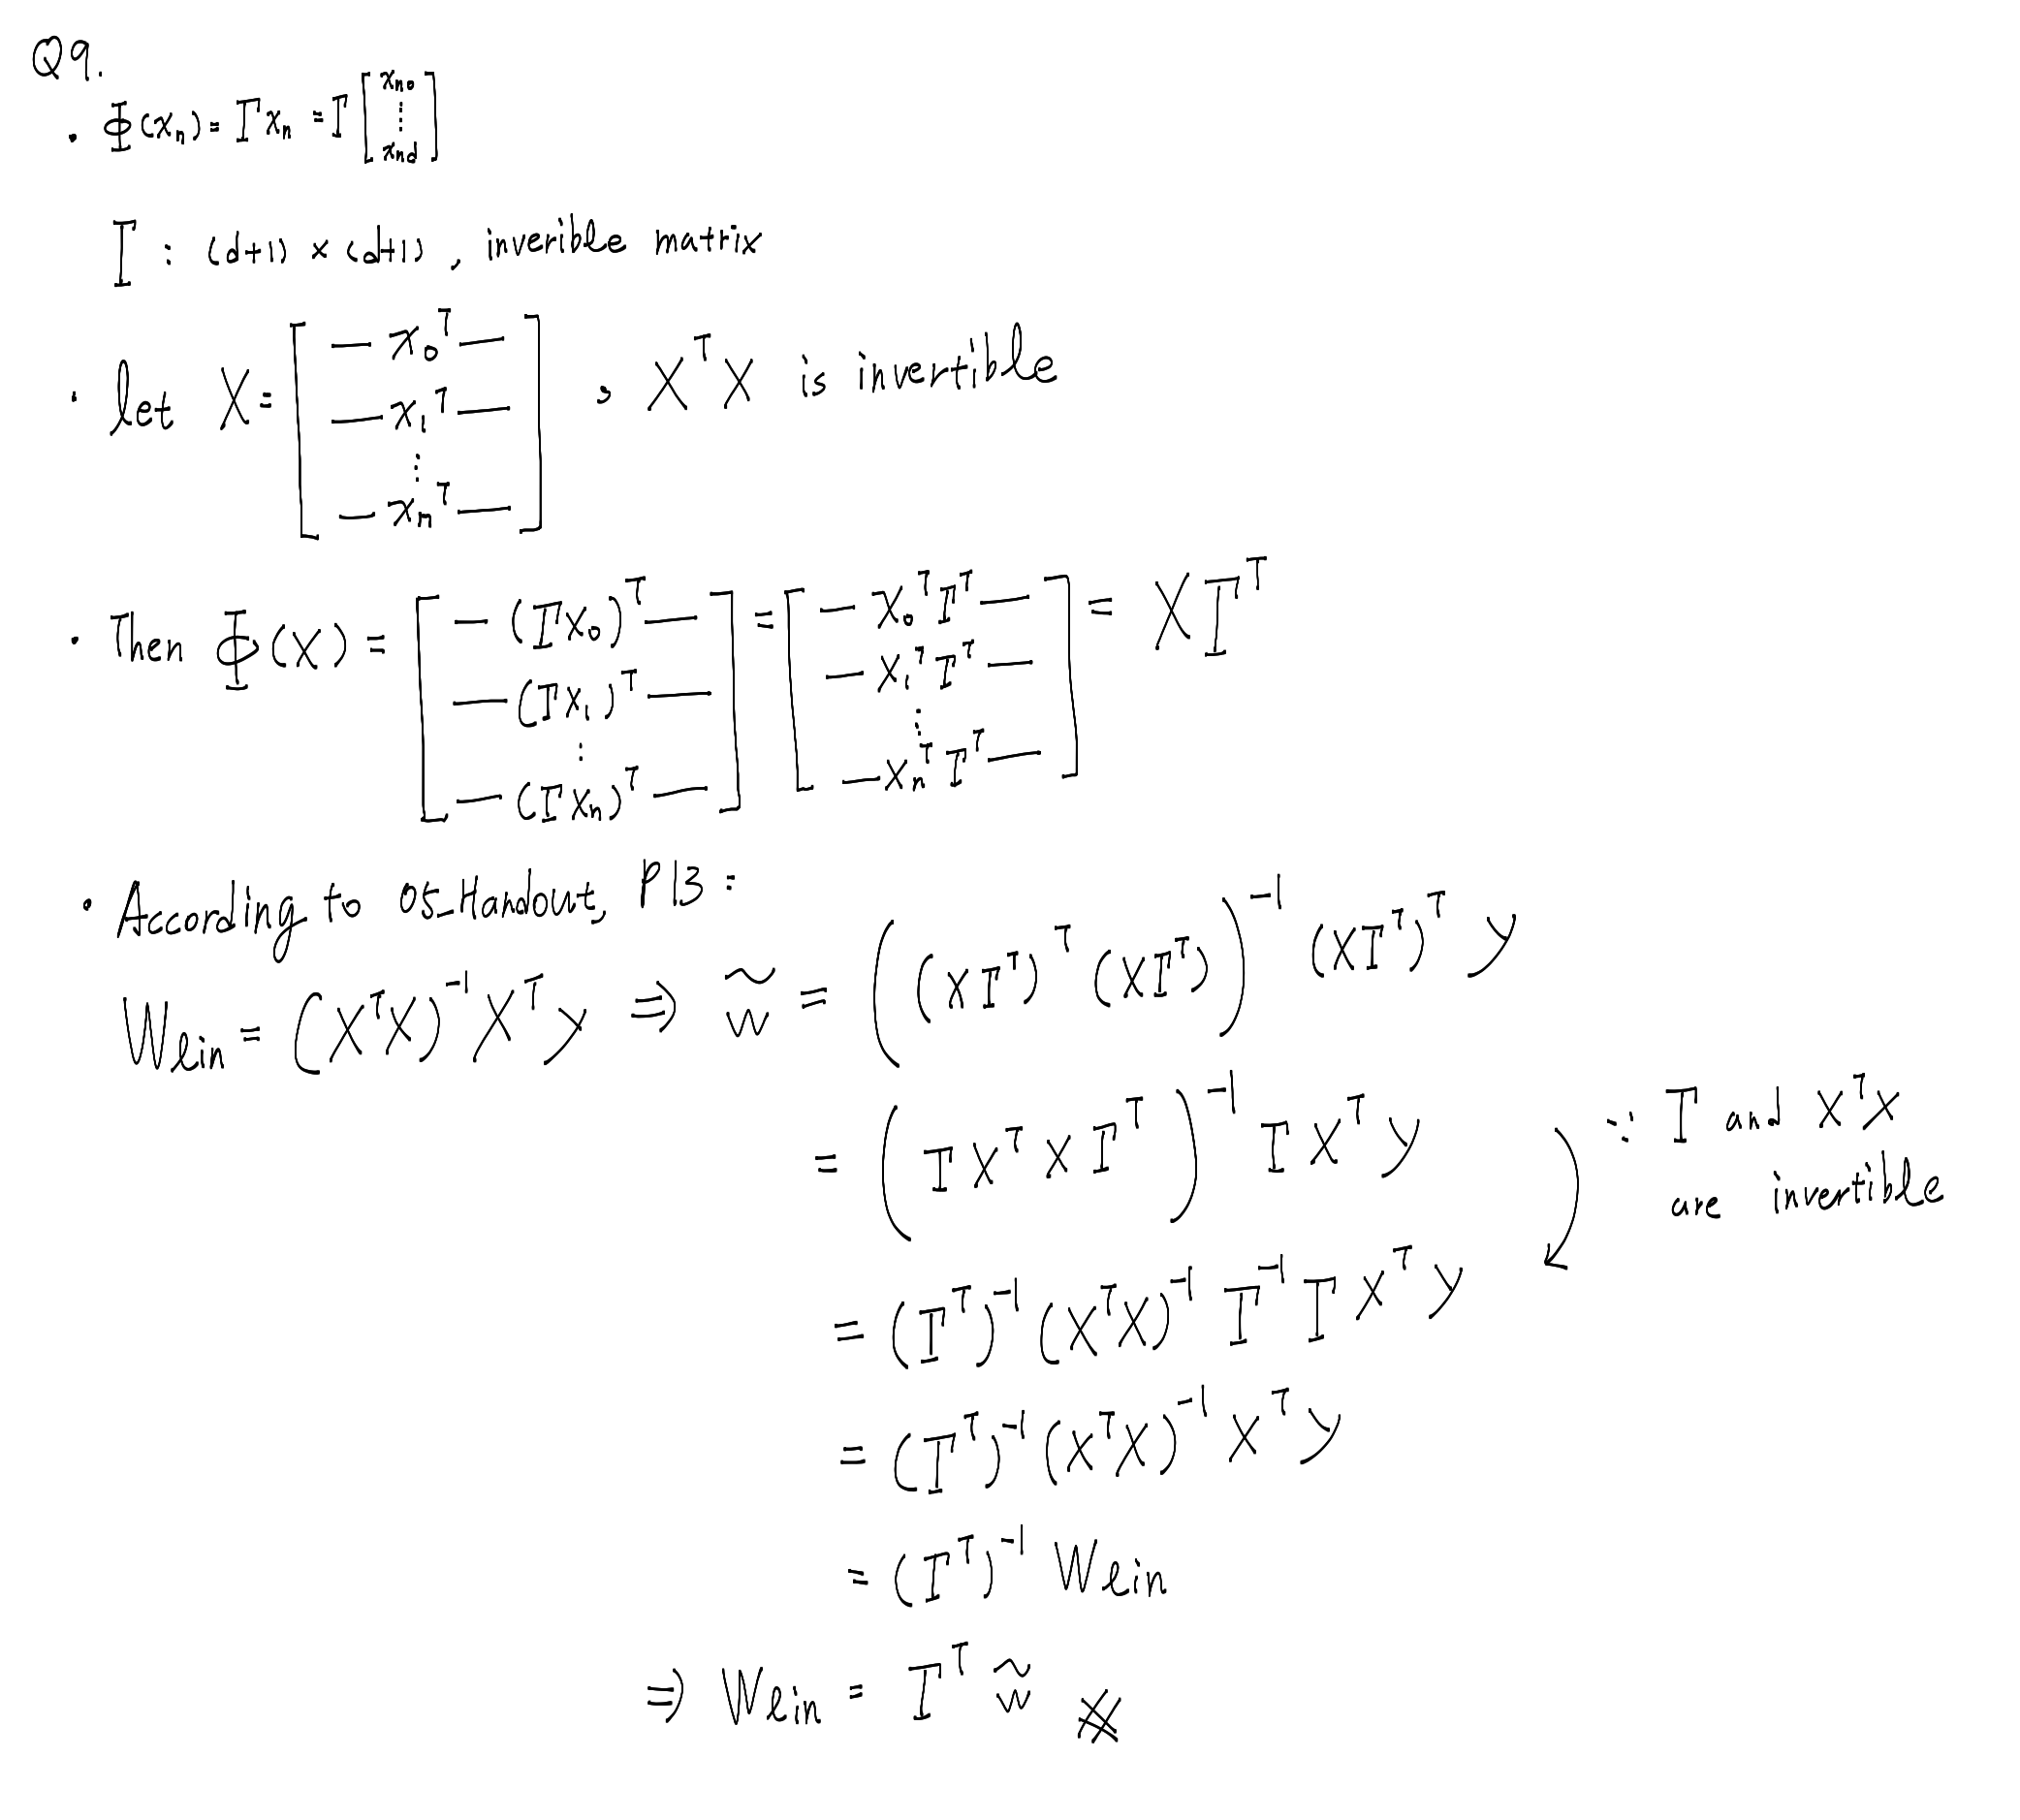 Q9.
· Φ(xₙ) = Γxₙ = Γ [ xₙ₀ ⋮ xₙd ]
Γ : (d+1) × (d+1) , inverible matrix
· let X = [ — x₀ᵀ — — x₁ᵀ — ⋮ — xₙᵀ — ] , XᵀX is invertible
· Then Φ(X) = [ — (Γx₀)ᵀ — — (Γx₁)ᵀ — ⋮ — (Γxₙ)ᵀ — ] = [ — x₀ᵀΓᵀ — — x₁ᵀΓᵀ — ⋮ — xₙᵀΓᵀ — ] = XΓᵀ
· According to 05_Handout, P13 :
Wlin = (XᵀX)⁻¹Xᵀy ⇒ w̃ = ((XΓᵀ)ᵀ(XΓᵀ))⁻¹ (XΓᵀ)ᵀ y
= (ΓXᵀXΓᵀ)⁻¹ ΓXᵀy
∵ Γ and XᵀX
are invertible
= (Γᵀ)⁻¹(XᵀX)⁻¹Γ⁻¹ΓXᵀy
= (Γᵀ)⁻¹(XᵀX)⁻¹Xᵀy
= (Γᵀ)⁻¹ Wlin
⇒ Wlin = Γᵀ w̃ #